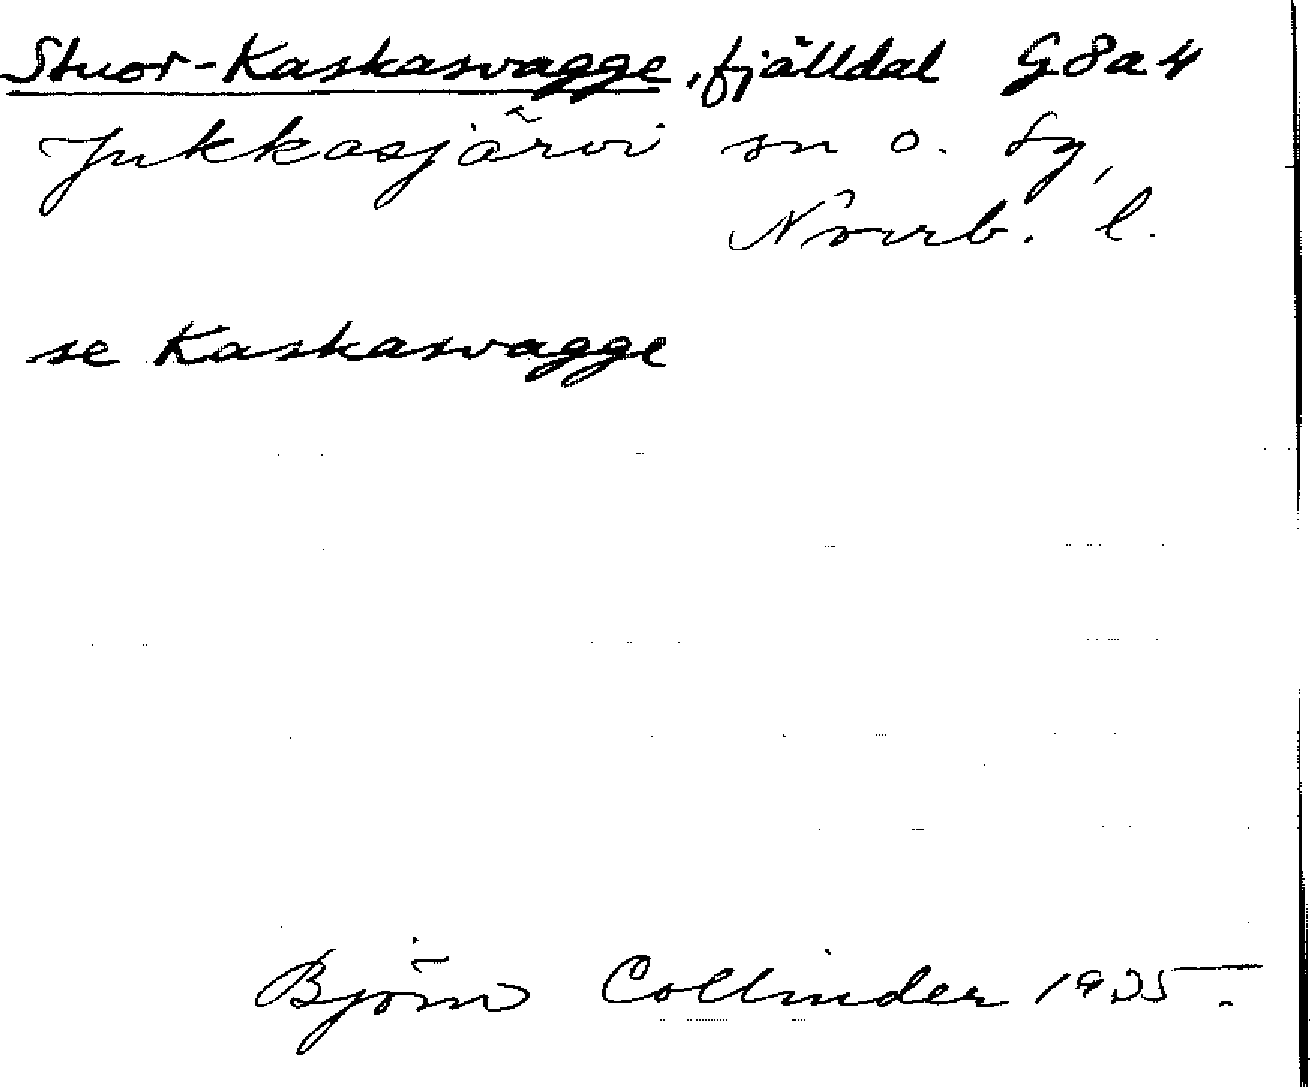 Stuor-Kaskasvagge, fjälldal G8a4
Jukkasjärvi sn o. tg,
Norrb. l.
se Kaskasvagge
Björn Collinder 1935.